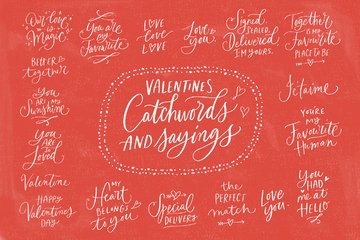 Our love
is
Magic
You
are my
Favourite
Love
Love
Love
Love is
You.
Signed
SEALED,
Delivered
I'M YOURS.
Together
is my
Favourite
PLACE TO BE
BETTER
together
VALENTINES
Catchwords
AND sayings
Je t'aime
You
ARE MY
Sunshine
YOU'RE
MY
Favourite
Human
You
ARE
So
Loved
Valentine
HAPPY
Valentine's
DAY
MY
Heart
BELONGS
to you
Special
DELIVERY
the
PERFECT
match
Love
you.
YOU
HAD
me at
HELLO